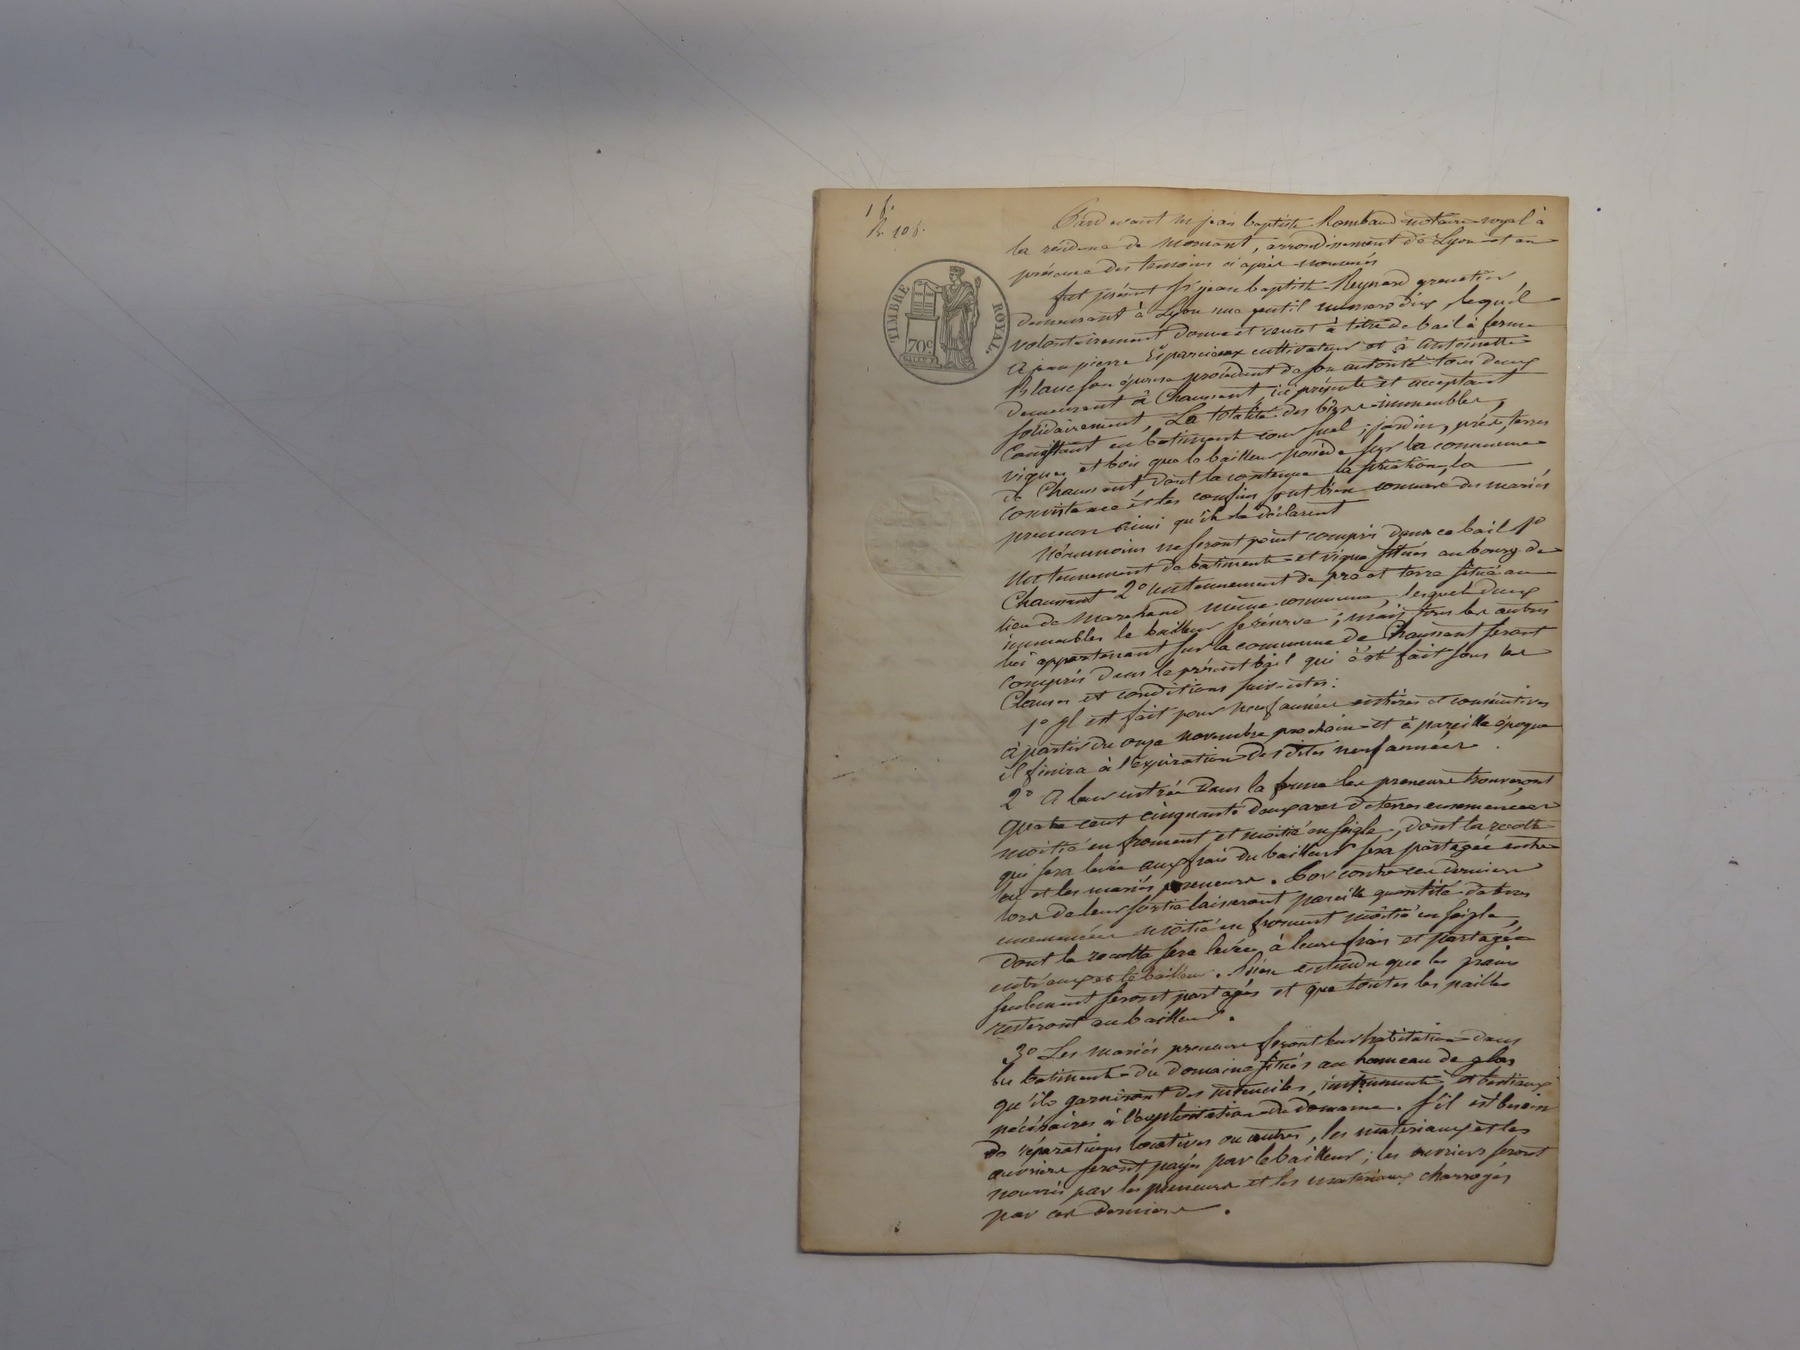 1 f.
N. 108.
TIMBRE ROYAL.
70c
Pardevant Me jean baptiste Rambaud notaire royal à
la résidence de Mornant, arrondissement de Lyon et en
présence des témoins ci après nommés
fut présent Sr jean baptiste Reynard grenetier
demeurant à Lyon rue numero dix, lequel
volontairement donne et remet à titre de bail à ferme
à jean pierre cultivateur et à antoinette
Blanc son épouse procédant de son autorité tous deux
demeurant à Chaussant ici présents et acceptant
solidairement, La totalité des biens immeubles,
Consistant en batiments cour suel, jardin, prés, terres
vignes et bois que le bailleur possède sur la commune
de Chaussant dont la contenue la situation, la
consistance et les confins sont bien connus des mariés
preneurs ainsi qu'ils le déclarent
Néanmoins ne seront point compris dans ce bail 1º
Un tennement de batiments et vigne situés au bourg de
Chaussant 2º un tennement de pré et terre situé au
lieu de Marchand même commune, lesquels deux
immeubles le bailleur se réserve; mais tous les autres
lui appartenant sur la commune de Chaussant seront
compris dans le présent bail qui a été fait sous les
Clauses et conditions suivantes:
1º Il est fait pour neuf années entières et consécutives
à partir du onze novembre prochain et à pareille époque
il finira à l'expiration desdites neuf années.
2º A leur entrée dans la ferme les preneurs trouveront
quatre cent cinquante deux ares de terres ensemencées
moitié en froment et moitié en seigle, dont la récolte
qui sera levée aux frais du bailleur sera partagée entre
lui et les mariés preneurs. Par contre ces derniers
lors de leur sortie laisseront pareille quantité de terres
ensemencées moitié en froment moitié en seigle,
dont la récolte sera levée à leurs frais et partagée
entr'eux et le bailleur. Bien entendu que les grains
seulement seront partagés et que toutes les pailles
resteront au bailleur.
3º Les mariés preneurs feront leur habitation dans
les batiments du domaine situés au hameau de
qu'ils garniront des meubles, instruments et bestiaux
nécessaires à l'exploitation du domaine. S'il est besoin
de réparations locatives ou autres, les materiaux et les
ouvriers seront payés par le bailleur; les ouvriers seront
nourris par les preneurs et les materiaux charroyés
par ces derniers.